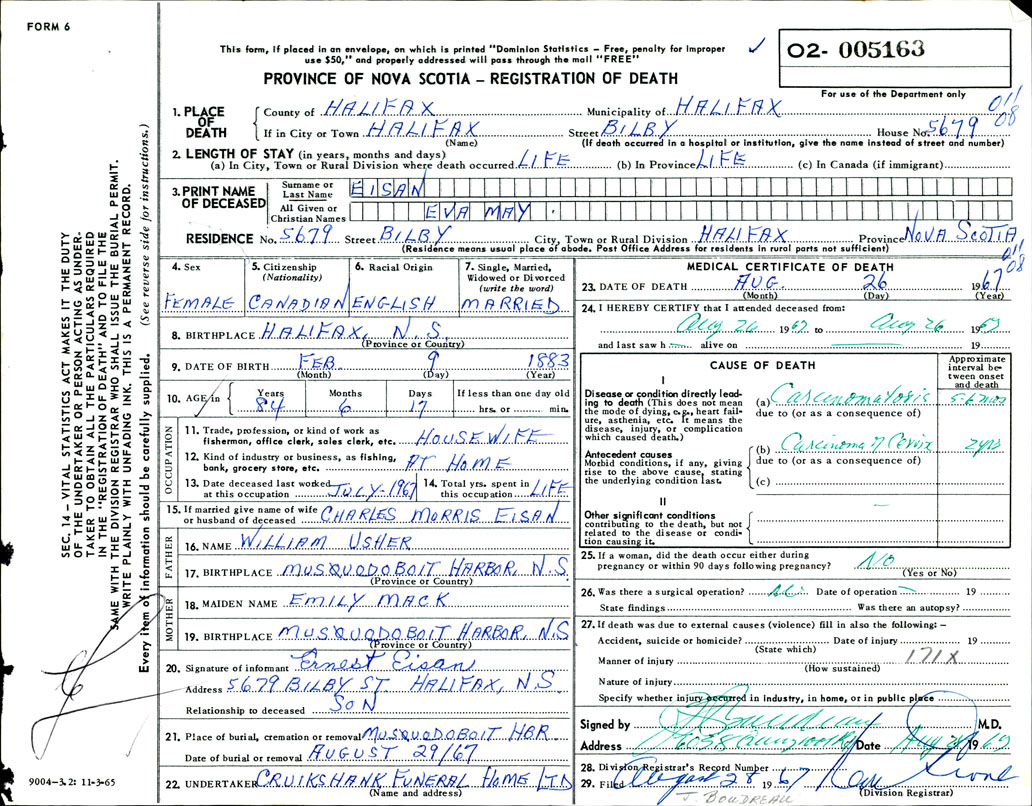 FORM 6
This form, if placed in an envelope, on which is printed "Dominion Statistics – Free, penalty for improper
use $50," and properly addressed will pass through the mail "FREE"
✓
O2- 005163
PROVINCE OF NOVA SCOTIA – REGISTRATION OF DEATH
For use of the Department only
011
08
1. PLACE OF DEATH
County of HALIFAX Municipality of HALIFAX
If in City or Town HALIFAX Street BILBY House No. 5679
(Name) (If death occurred in a hospital or institution, give the name instead of street and number)
2. LENGTH OF STAY (in years, months and days)
(a) In City, Town or Rural Division where death occurred. LIFE (b) In Province LIFE (c) In Canada (if immigrant)
3. PRINT NAME OF DECEASED
Surname or Last Name EISAN
All Given or Christian Names EVA MAY
RESIDENCE No. 5679 Street BILBY City, Town or Rural Division HALIFAX Province NOVA SCOTIA
(Residence means usual place of abode. Post Office Address for residents in rural parts not sufficient)
011
08
4. Sex
FEMALE
5. Citizenship (Nationality)
CANADIAN
6. Racial Origin
ENGLISH
7. Single, Married, Widowed or Divorced (write the word)
MARRIED
8. BIRTHPLACE HALIFAX, N.S.
(Province or Country)
9. DATE OF BIRTH FEB 9 1883
(Month) (Day) (Year)
10. AGE in Years Months Days If less than one day old
84 6 17 hrs. or min.
OCCUPATION
11. Trade, profession, or kind of work as
fisherman, office clerk, sales clerk, etc. HOUSEWIFE
12. Kind of industry or business, as fishing,
bank, grocery store, etc. AT HOME
13. Date deceased last worked
at this occupation JULY-1967
14. Total yrs. spent in
this occupation LIFE
15. If married give name of wife
or husband of deceased CHARLES MORRIS EISAN
FATHER
16. NAME WILLIAM USHER
17. BIRTHPLACE MUSQUODOBOIT HARBOR, N.S.
(Province or Country)
MOTHER
18. MAIDEN NAME EMILY MACK
19. BIRTHPLACE MUSQUODOBOIT HARBOR, N.S
(Province or Country)
20. Signature of informant Ernest Eisan
Address 5679 BILBY ST. HALIFAX, N.S
Relationship to deceased SON
21. Place of burial, cremation or removal MUSQUODOBOIT HBR
Date of burial or removal AUGUST 29/67
22. UNDERTAKER CRUIKSHANK FUNERAL HOME LTD
(Name and address)
MEDICAL CERTIFICATE OF DEATH
23. DATE OF DEATH AUG. 26 1967
(Month) (Day) (Year)
24. I HEREBY CERTIFY that I attended deceased from:
Aug 26 1967 to Aug 26 1967
and last saw h alive on 19
CAUSE OF DEATH
Approximate interval between onset and death
I
Disease or condition directly leading to death (This does not mean the mode of dying, e.g., heart failure, asthenia, etc. It means the disease, injury, or complication which caused death.)
(a) Carcinomatosis
due to (or as a consequence of)
Antecedent causes
Morbid conditions, if any, giving rise to the above cause, stating the underlying condition last.
(b) Carcinoma of Cervix 2 yrs
due to (or as a consequence of)
(c)
II
Other significant conditions
contributing to the death, but not related to the disease or condition causing it.
25. If a woman, did the death occur either during
pregnancy or within 90 days following pregnancy? No
(Yes or No)
26. Was there a surgical operation? No Date of operation – 19
State findings Was there an autopsy?
27. If death was due to external causes (violence) fill in also the following: –
Accident, suicide or homicide? Date of injury 19
(State which)
Manner of injury 171X
(How sustained)
Nature of injury
Specify whether injury occurred in industry, in home, or in public place
Signed by M.D.
Address 6058 Date Aug 1967
28. Division Registrar's Record Number
29. Filed August 28 1967
(Division Registrar)
J. BOUDREAU
SEC. 14 – VITAL STATISTICS ACT MAKES IT THE DUTY
OF THE UNDERTAKER OR PERSON ACTING AS UNDER-
TAKER TO OBTAIN ALL THE PARTICULARS REQUIRED
IN THE "REGISTRATION OF DEATH" AND TO FILE THE
SAME WITH THE DIVISION REGISTRAR WHO SHALL ISSUE THE BURIAL PERMIT.
WRITE PLAINLY WITH UNFADING INK. THIS IS A PERMANENT RECORD.
Every item of information should be carefully supplied. (See reverse side for instructions.)
9004-3.2: 11-3-65